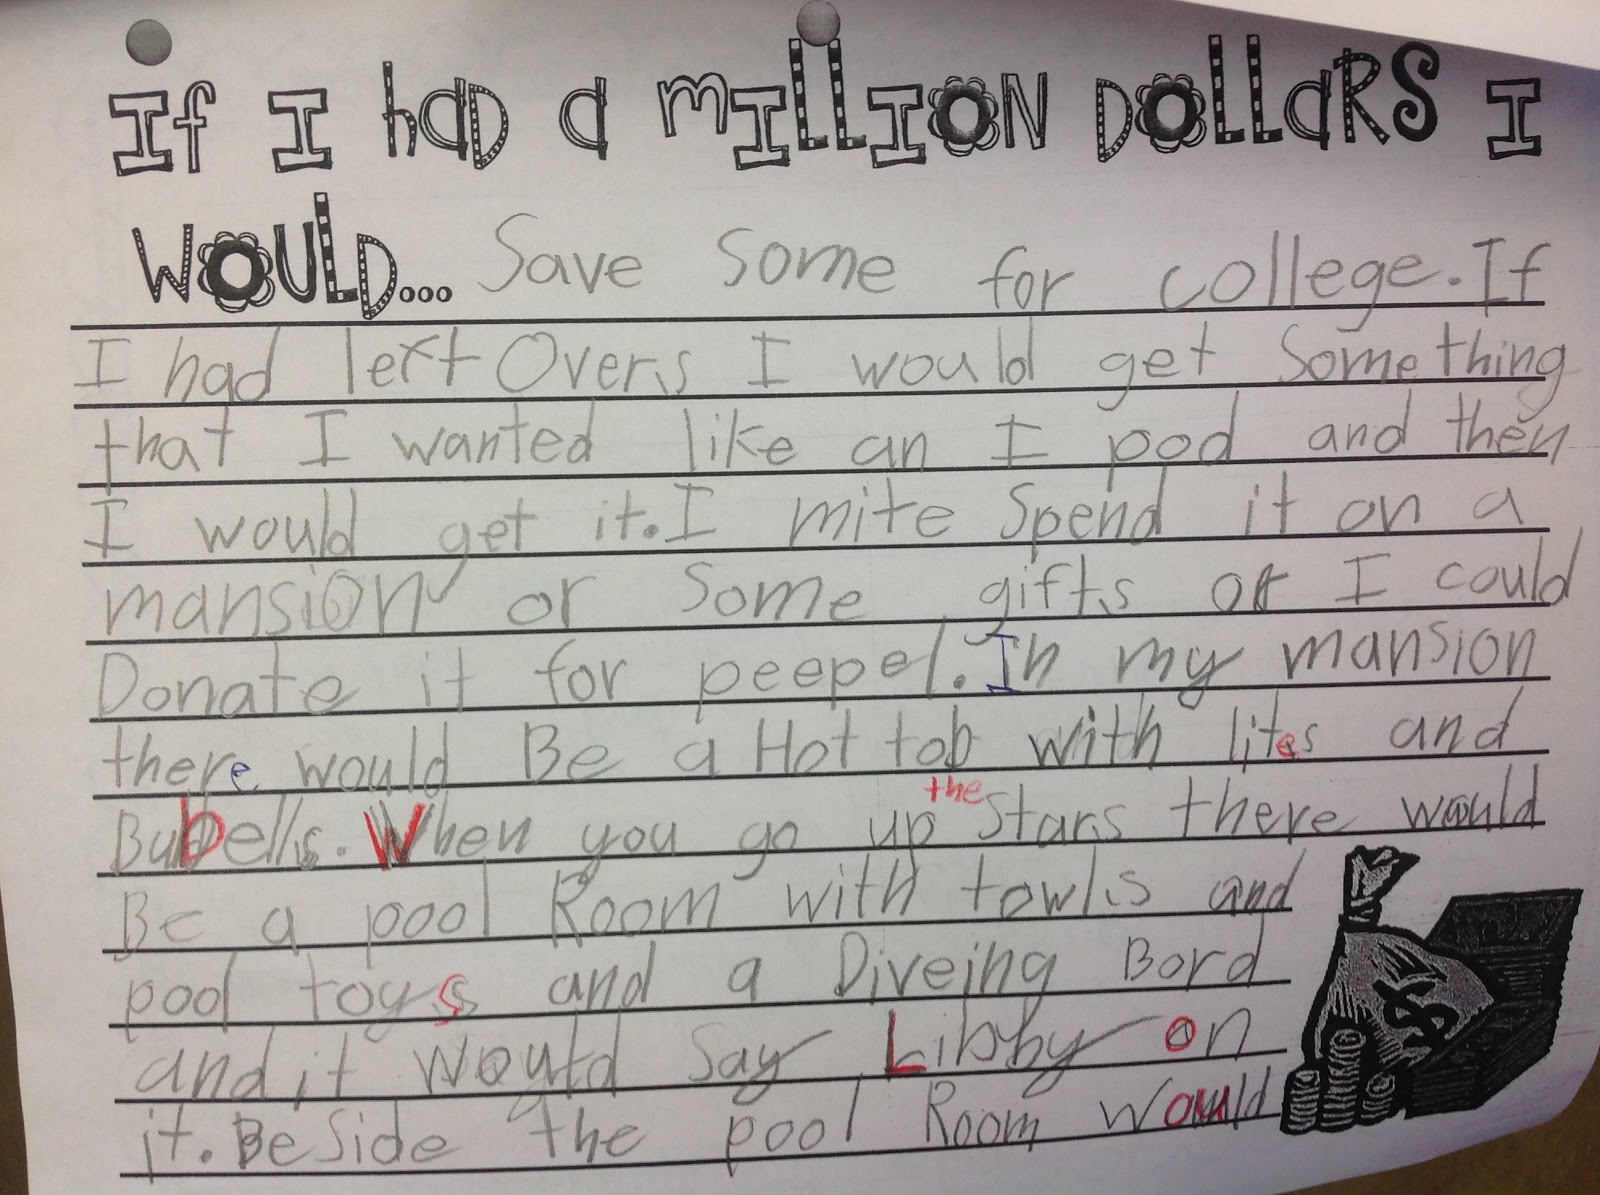 If I had a million dollars I
would... Save Some for college. If
I had left Overs I would get Something
that I wanted like an I pod and then
I would get it. I mite Spend it on a
mansion or Some gifts or I could
Donate it for peepel. In my mansion
there would Be a Hot tob with lites and
Bubbells. When you go up the Stars there would
Be a pool Room with towls and
pool toys and a Diveing Bord
and it would Say Libby on
it. Beside the pool Room would
$